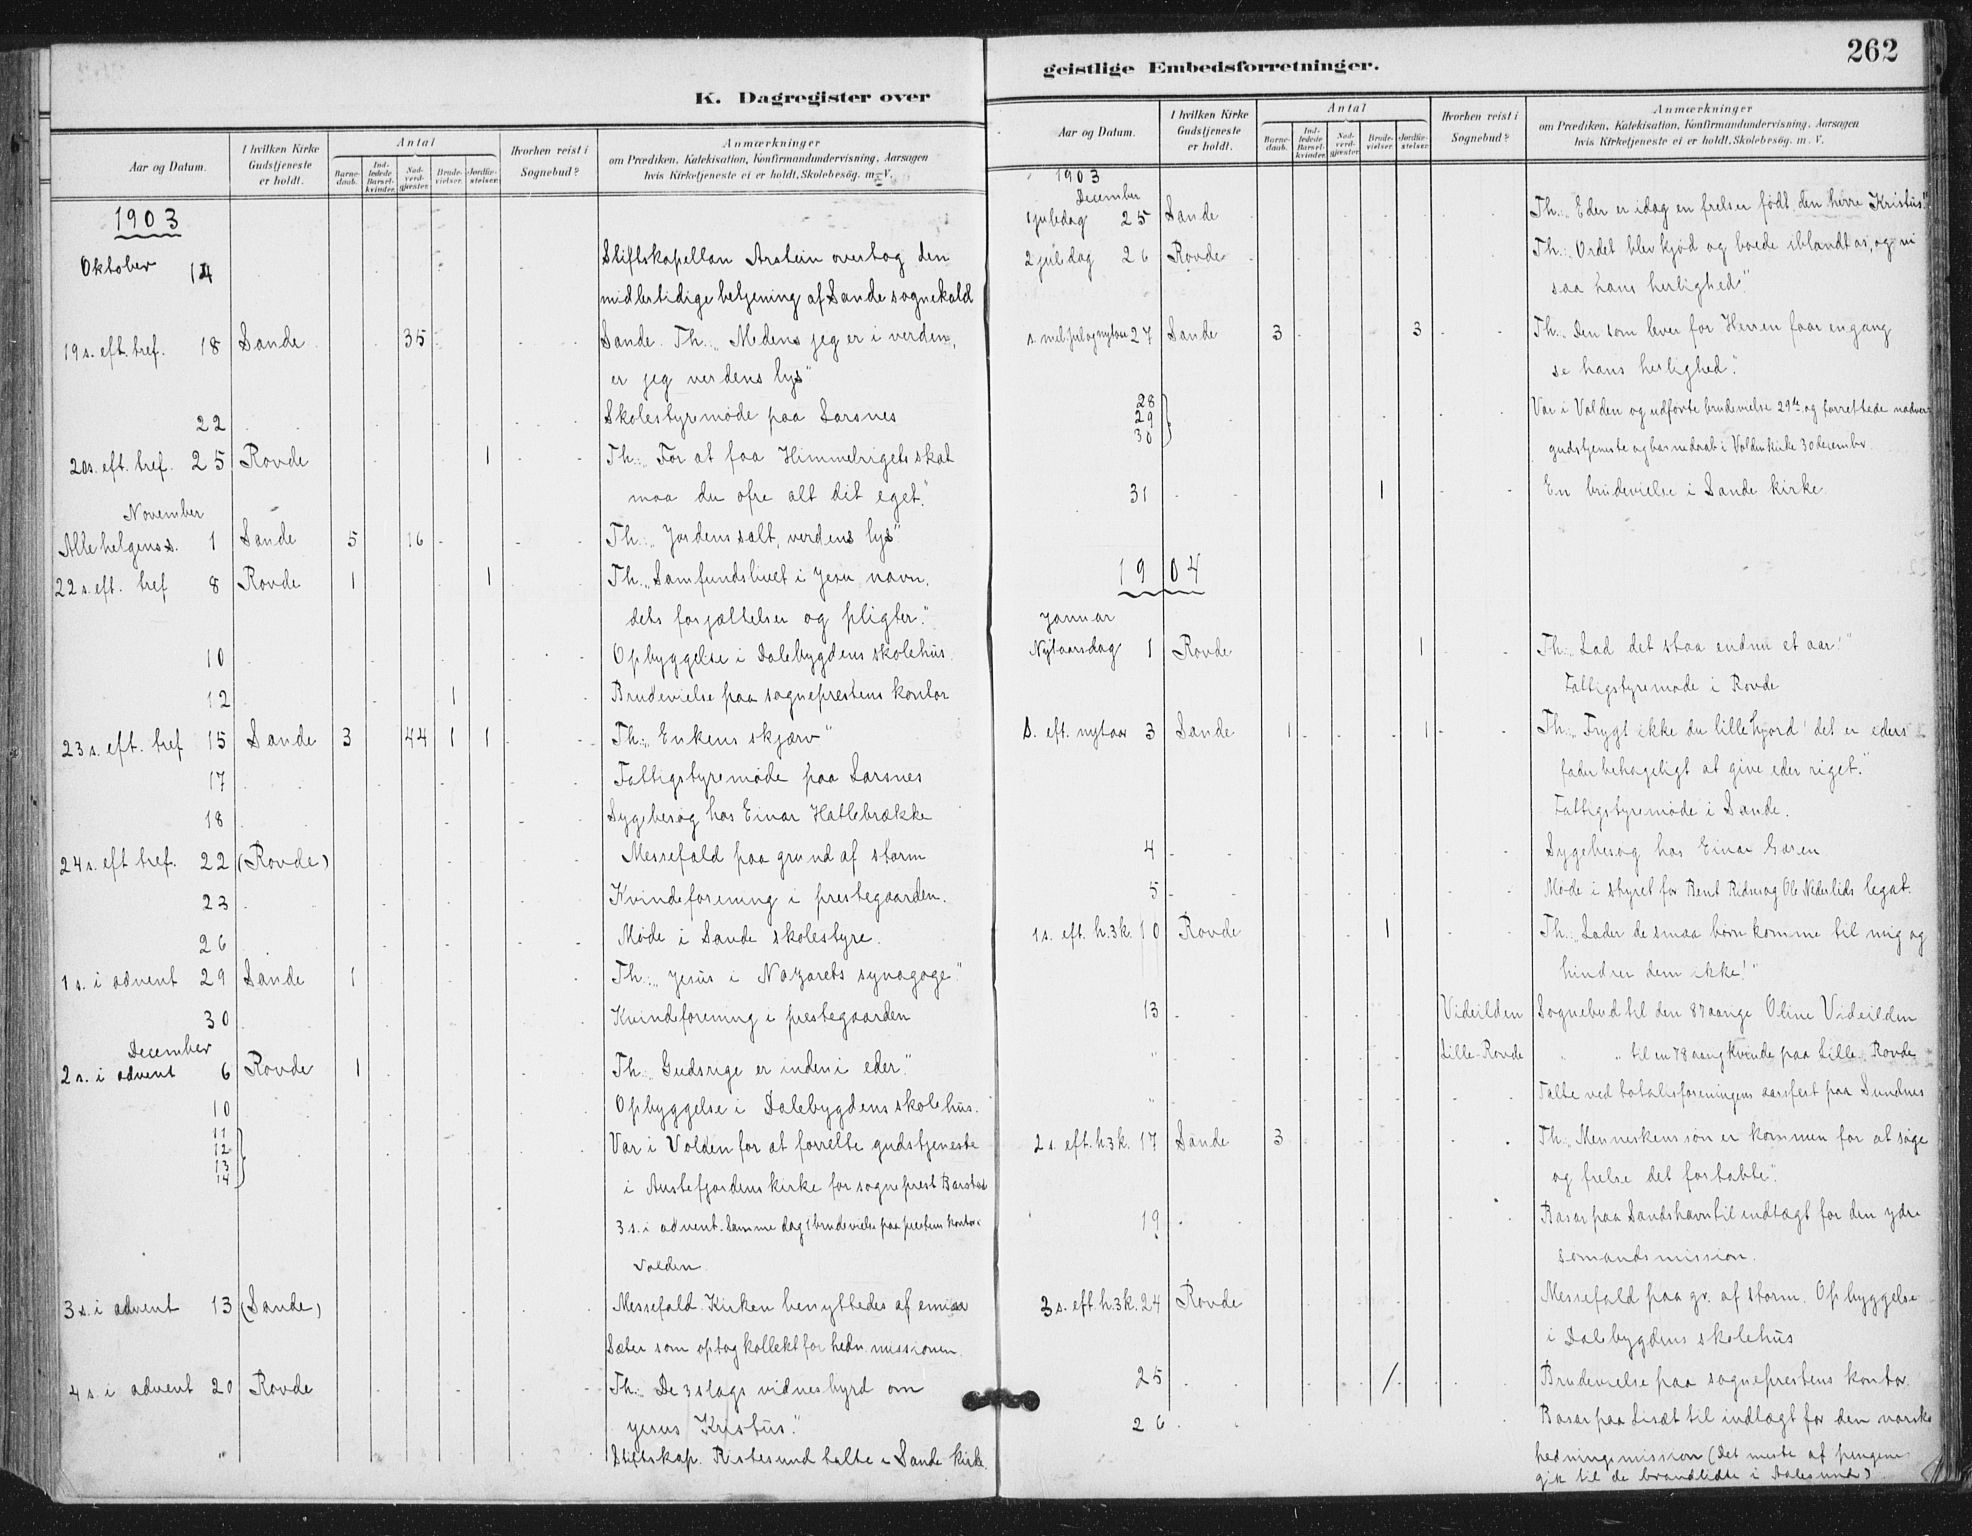 K. Dagregister over
Aar og Datum.
I hvilken Kirke Gudstjeneste er holdt.
Antal
Barnedaab.
Indledede Barselkvinder.
Nadverdgjæster.
Brudevielser.
Jordfæstelser.
Hvorhen reist i Sognebud?
Anmærkninger
om Prædiken, Katekisation, Konfirmandundervisning, Aarsagen
hvis Kirketjeneste ei er holdt, Skolebesög. m. V.
1903
Oktober 14 Stiftskapellan Arstein overtog den
midlertidige betjening af Sande sognekald
19 s. eft. tref. 18 Sande 35 Sande. Th.: „Medens jeg er i verden,
er jeg verdens lys"
22 Skolestyremøde paa Larsnes
20 s. eft. tref. 25 Rovde 1 Th.: „For at faa Himmelrigets skat
maa du ofre alt dit eget."
November
Alle helgens s. 1 Sande 5 16 Th.: „Jordens salt, verdens lys"
22 s. eft. tref 8 Rovde 1 1 Th.: „Samfundslivet i Jesu navn,
dets forjættelser og pligter."
10 Opbyggelse i Dalebygdens skolehus.
12 1 Brudevielse paa sogneprestens kontor
23 s. eft. tref 15 Sande 3 44 1 1 Th.: „Enkens skjærv"
17 Fattigstyremøde paa Larsnes
18 Sygebesøg hos Einar Hatlebrække
24 s. eft tref. 22 (Rovde) Messefald paa grund af storm
23 Kvindeforening i prestegaarden.
26 Møde i Sande skolestyre.
1 s. i advent 29 Sande 1 Th.: „Jesus i Nazarets synagoge."
30 Kvindeforening i prestegaarden
December
2 s. i advent 6 Rovde 1 Th.: „Gudsrige er indeni eder."
10 Opbyggelse i Dalebygdens skolehus.
11
12
13
14
Var i Volden for at forrette gudstjeneste
i Austefjordens kirke for sogneprest Barstad
3 s. i advent. Samme dag 1 brudevielse paa prestens kontor i
Volden.
3 s. i advent 13 (Sande) Messefald. Kirken benyttedes af emissa
Sæter som optog kollekt for hedn. missionen.
4 s. i advent 20 Rovde Th.: „De 3 slags vidnesbyrd om
Jesus Kristus."
" Stiftskap. Ristesund talte i Sande kirke.
262
geistlige Embedsforretninger.
Aar og Datum.
I hvilken Kirke Gudstjeneste er holdt.
Antal
Barnedaab.
Indledede Barselkvinder.
Nadverdgjæster.
Brudevielser.
Jordfæstelser.
Hvorhen reist i Sognebud?
Anmærkninger
om Prædiken, Katekisation, Konfirmandundervisning, Aarsagen
hvis Kirketjeneste ei er holdt, Skolebesög. m. V.
1903
December
1 juledag 25 Sande Th.: „Eder er idag en frelser født, den herre Kristus."
2 juledag 26 Rovde Th.: „Ordet blev kjød og boede iblandt os, og vi
saa hans herlighed".
s. mel. jul og nytaar 27 Sande 3 3 Th.: „Den som lever for Herren faar engang
se hans herlighed."
28
29
30
Var i Volden og udførte brudevielse 29de og forrettede nadver-
gudstjeneste og barnedaab i Volden kirke 30 december.
31 1 En brudevielse i Sande kirke.
1904
Januar
Nytaarsdag 1 Rovde 1 Th.: „Lad det staa endnu et aar!"
Fattigstyremøde i Rovde
S. eft. nytaar 3 Sande 1 1 Th.: „Frygt ikke du lille hjord! det er eders
fader behageligt at give eder riget."
Fattigstyremøde i Sande.
4 Sygebesøg hos Einar
5 Møde i styret for Bent og Ole legat.
1 s. eft. h. 3 k. 10 Rovde 1 Th.: „Lader de smaa børn komme til mig og
hindrer dem ikke!"
13 Videilden Sognebud til den 87 aarige Oline Videilden
" Lille-Rovde " " til en 78 aarig kvinde paa Lille-Rovde
" Talte ved totalisforeningens aarsfest paa Sundnes
2 s. eft. h. 3 k. 17 Sande 3 Th.: „Menneskens søn er kommen for at søge
og frelse det fortabte".
19 Basar paa Sandshavn til indtægt for den ydre
sømandsmission.
3 s. eft. h. 3 k. 24 Rovde Messefald paa gr. af storm. Opbyggelse
i Dalebygdens skolehus
25 1 Brudevielse paa sogneprestens kontor.
26 Basar paa Lisæt til indtægt for den norske
hedningemission (Det meste af pengene
gik til de brandlidte i Aalesund)